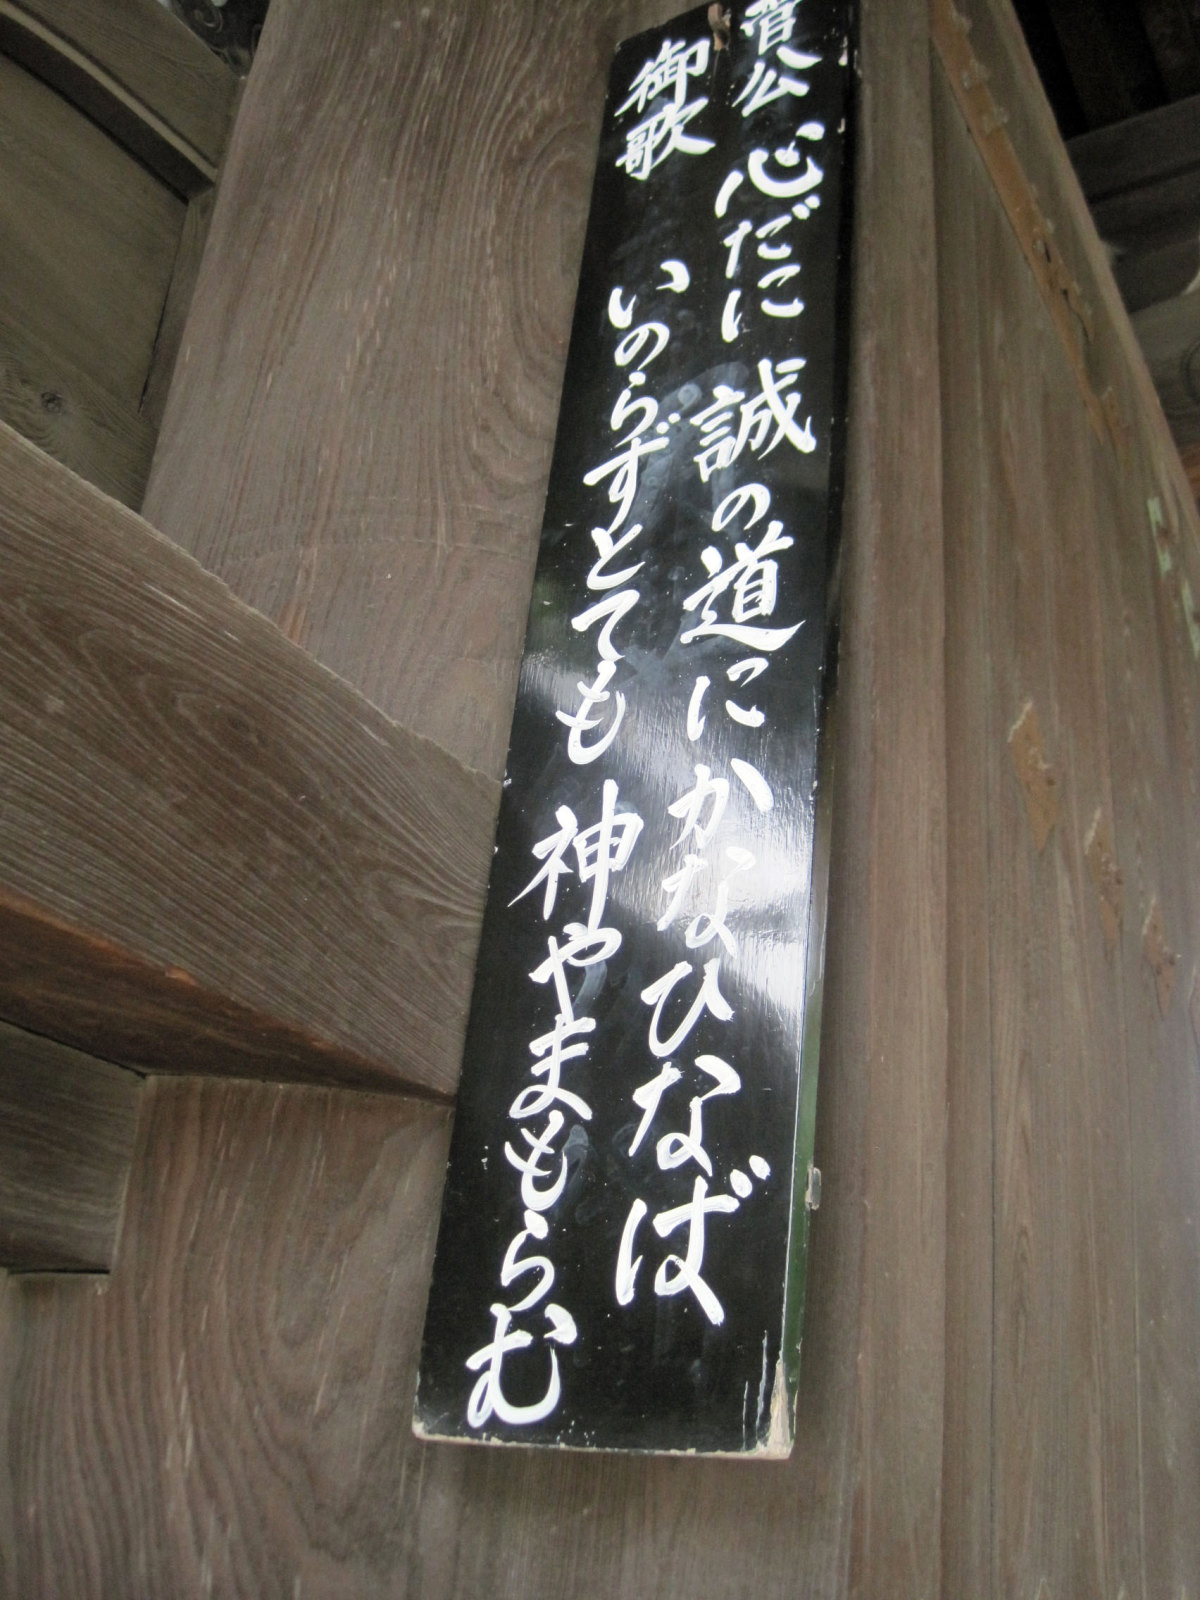 菅公 心だに 誠の道にかなひなば
御歌 いのらずとても 神やまもらむ